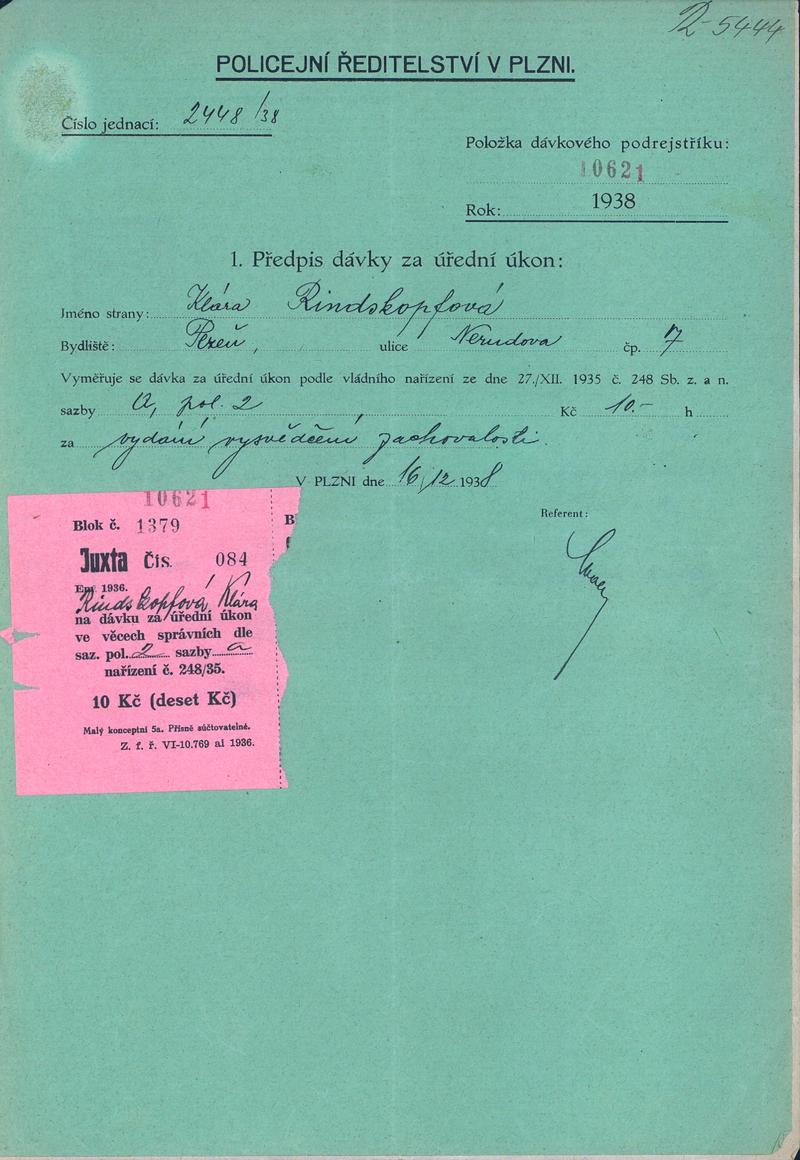 R-5444
POLICEJNÍ ŘEDITELSTVÍ V PLZNI.
Číslo jednací: 2448/38
Položka dávkového podrejstříku:
10621
Rok: 1938
1. Předpis dávky za úřední úkon:
Jméno strany: Klára Rindskopfová
Bydliště: Plzeň, ulice Nerudova čp. 7
Vyměřuje se dávka za úřední úkon podle vládního nařízení ze dne 27./XII. 1935 č. 248 Sb. z. a n.
sazby a, pol. 2, Kč 10.- h
za vydání vysvědčení zachovalosti.
V PLZNI dne 16/12 1938
Referent:
10621
Blok č. 1379
B
Juxta Čís. 084
Em. 1936.
Rindskopfová Klára
na dávku za úřední úkon
ve věcech správních dle
saz. pol. 2 sazby a
nařízení č. 248/35.
10 Kč (deset Kč)
Malý konceptní 5a. Přísně súčtovatelné.
Z. f. ř. VI-10.769 ai 1936.